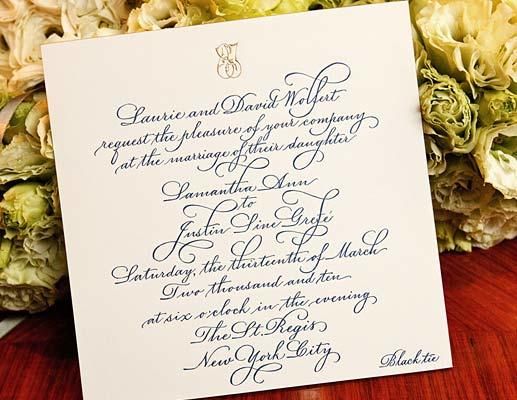 Laurie and David Wolfert
request the pleasure of your company
at the marriage of their daughter
Samantha Ann
to
Justin Sine Grefé
Saturday, the thirteenth of March
Two thousand and ten
at six o'clock in the evening
The St. Regis
New York City
Black tie